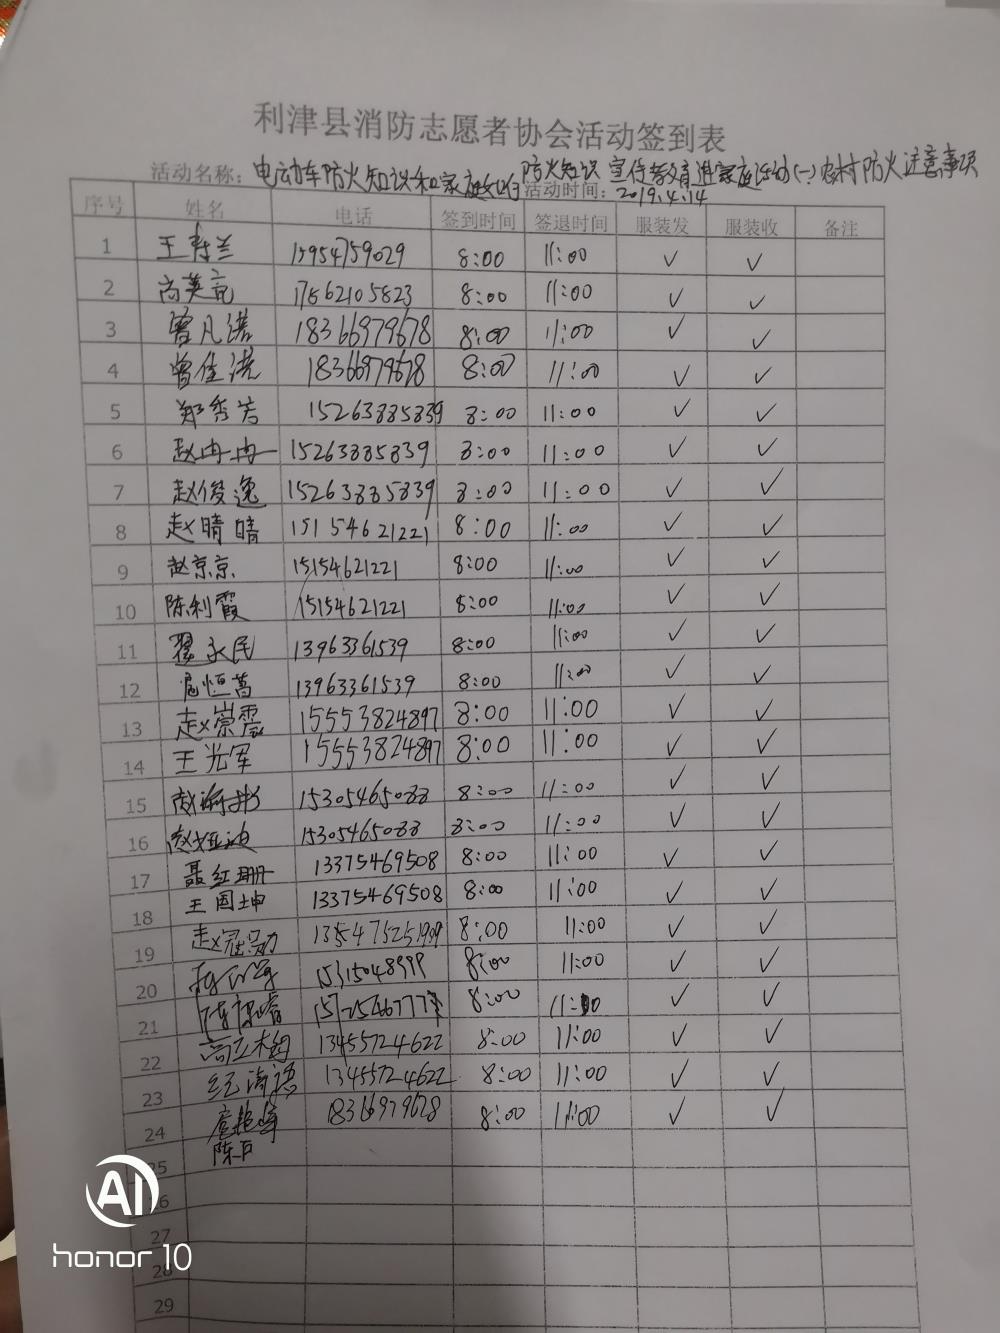 利津县消防志愿者协会活动签到表
活动名称：电动车防火知识和家庭如何防火知识 宣传教育进家庭活动(一)农村防火注意事项
活动时间：2019.4.14
序号 姓名 电话 签到时间 签退时间 服装发 服装收 备注
1 王寿兰 15954759029 8:00 11:00 ✓ ✓
2 尚英 17862105823 8:00 11:00 ✓ ✓
3 曾凡 18366979678 8:00 11:00 ✓ ✓
4 曾佳 18366979678 8:00 11:00 ✓ ✓
5 郑秀芳 15263885839 8:00 11:00 ✓ ✓
6 赵冉冉 15263885839 8:00 11:00 ✓ ✓
7 赵俊逸 15263885839 8:00 11:00 ✓ ✓
8 赵晴晴 15154621221 8:00 11:00 ✓ ✓
9 赵京京 15154621221 8:00 11:00 ✓ ✓
10 陈利霞 15154621221 8:00 11:00 ✓ ✓
11 永民 13963361539 8:00 11:00 ✓ ✓
12 恒 13963361539 8:00 11:00 ✓ ✓
13 赵崇震 15553824897 8:00 11:00 ✓ ✓
14 王光军 15553824897 8:00 11:00 ✓ ✓
15 15305465088 8:00 11:00 ✓ ✓
16 赵 15305465088 8:00 11:00 ✓ ✓
17 聂红珊 13375469508 8:00 11:00 ✓ ✓
18 王国坤 13375469508 8:00 11:00 ✓ ✓
19 赵冠勋 8:00 11:00 ✓ ✓
20 15315048999 8:00 11:00 ✓ ✓
21 陈 8:00 11:00 ✓ ✓
22 高 13455724622 8:00 11:00 ✓ ✓
23 纪 13455724622 8:00 11:00 ✓ ✓
24 18366979678 8:00 11:00 ✓ ✓
25 陈
26
27
28
29
AI
honor 10